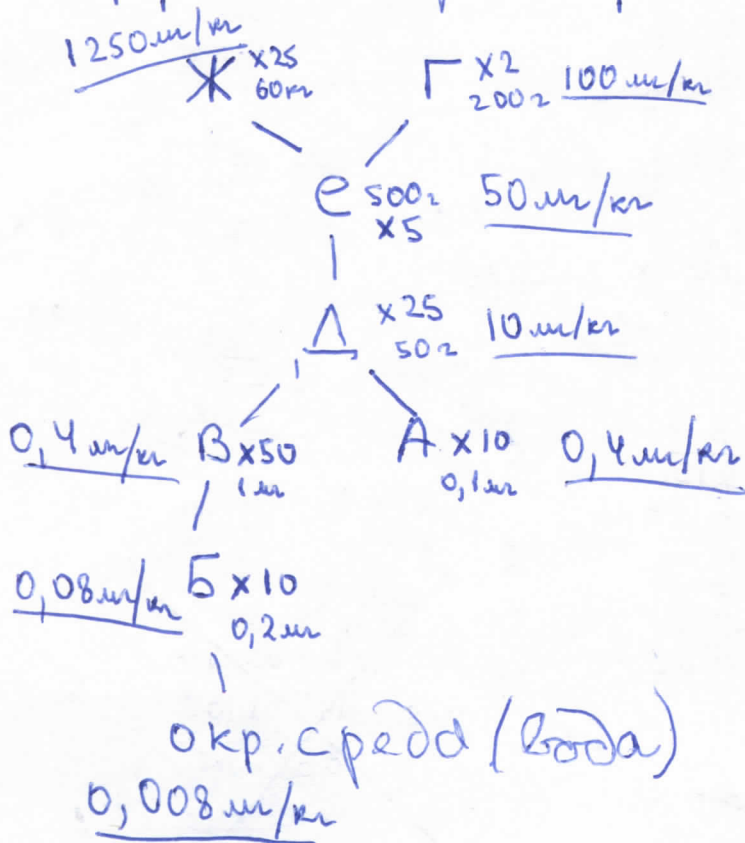 1250мг/кг
Ж x25 60кг
Г x2 200г 100мг/кг
е 500г x5 50мг/кг
Д x25 50г 10мг/кг
0,4мг/кг В x50 1мг
А x10 0,1мг 0,4мг/кг
0,08мг/кг Б x10 0,2мг
окр. среда (вода)
0,008мг/кг